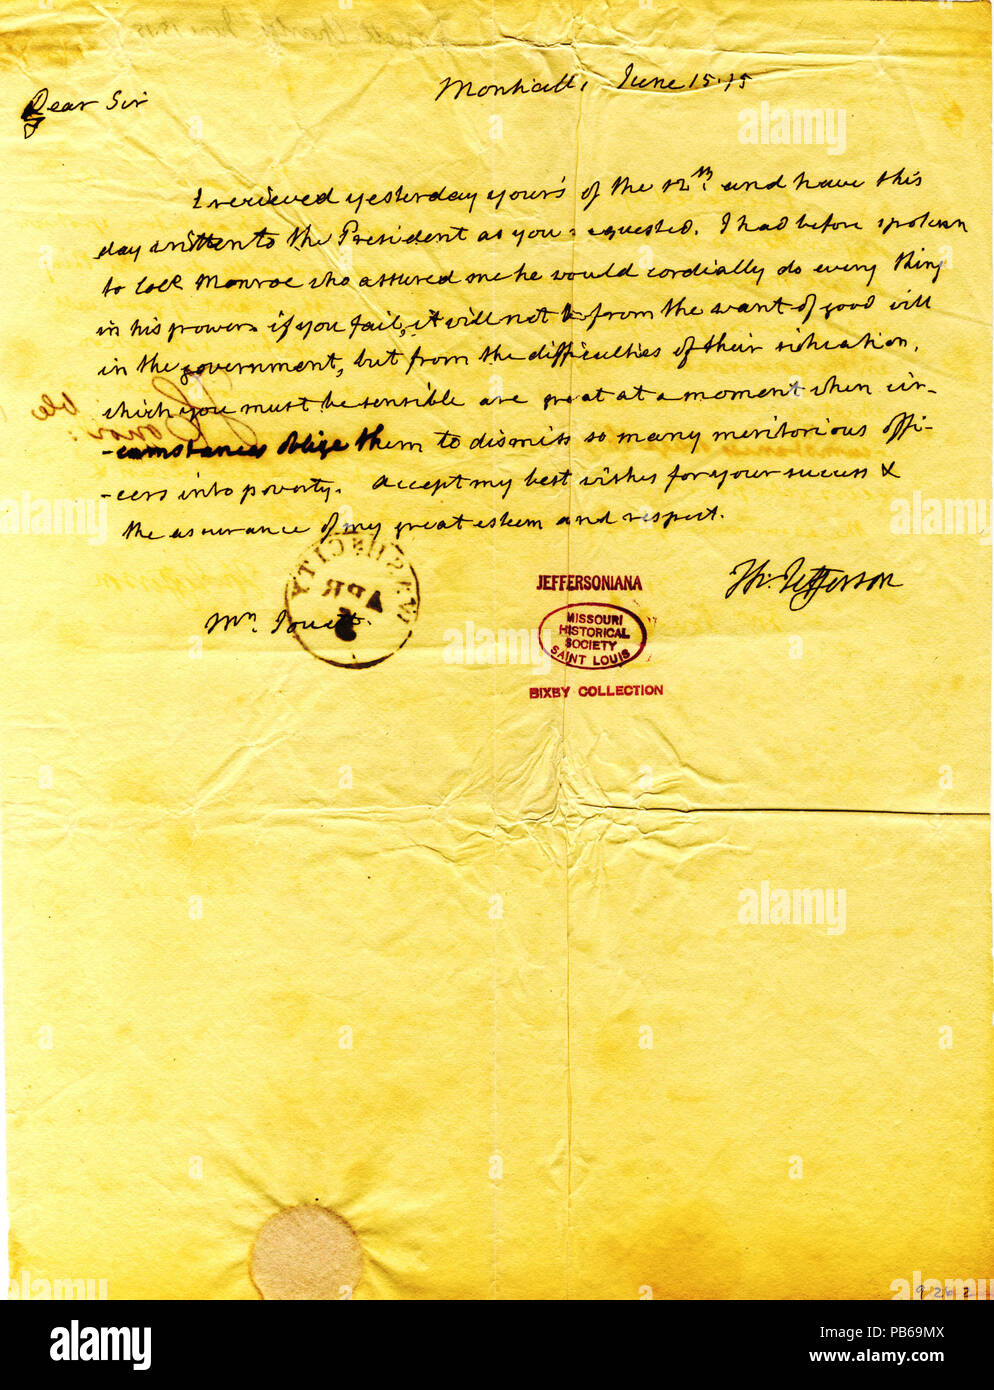 Monticello June 15. 15
Dear Sir
I recieved yesterday your's of the 12th. and have this
day written to the President as you requested. I had before spoken
to Colo. Monroe who assured me he would cordially do every thing
in his power. if you fail, it will not be from the want of good will
in the government, but from the difficulties of their situation.
which you must be sensible are great at a moment when cir-
-cumstances oblige them to dismiss so many meritorious offi-
-cers into poverty. Accept my best wishes for your success &
the assurance of my great esteem and respect.
Th: Jefferson
Mr.
APR
CITY
JEFFERSONIANA
MISSOURI
HISTORICAL
SOCIETY
SAINT LOUIS
BIXBY COLLECTION
9262
alamy
alamy
Image ID: PB69MX
www.alamy.com